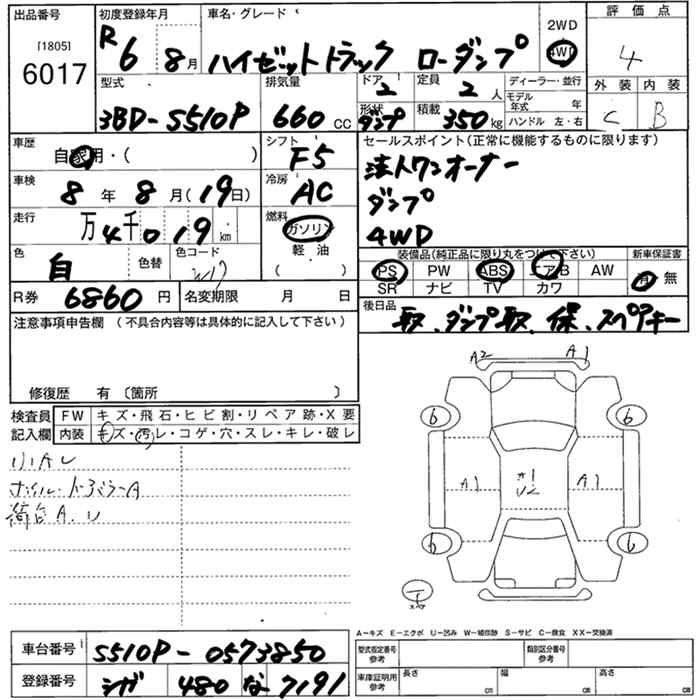 出品番号
[1805]
6017
初度登録年月
R6 8月
車名・グレード
ハイゼットトラック ローダンプ
2WD
4WD
評価点
4
外装 内装
C B
型式
3BD-S510P
排気量
660 CC
ドア 2
定員 2 人
形状 ダンプ
積載 350 kg
ディーラー・並行
モデル年式 年
ハンドル 左・右
車歴
自家用・( )
シフト F5
車検
8年8月(19日)
冷房 AC
走行
万4千019 km
燃料
ガソリン
軽・油
( )
色
白
色替
色コード
W19
R券 6860円
名変期限 月 日
セールスポイント(正常に機能するものに限ります)
法人ワンオーナー
ダンプ
4WD
装備品(純正品に限り丸をつけて下さい)
PS PW ABS エアB AW
SR ナビ TV カワ
新車保証書
有・無
後日品
取、ダンプ取、保、スペアキー
注意事項申告欄(不具合内容等は具体的に記入して下さい)
修復歴 有〔箇所 〕
検査員記入欄
FW キズ・飛石・ヒビ割・リペア跡・X要
内装 キズ・汚レ・コゲ・穴・スレ・キレ・破レ
小A U
ホイール・ドアミラーA
荷台A.U
A2 A1
6 6
A1 A1
6 6
スペア
A-キズ E-エクボ U-凹み W-補修跡 S-サビ C-腐食 XX-交換済
車台番号 S510P-0573850
登録番号 シガ 480 な 7191
型式指定番号参考
類別区分番号参考
車庫証明用参考
長さ cm 幅 cm 高さ cm